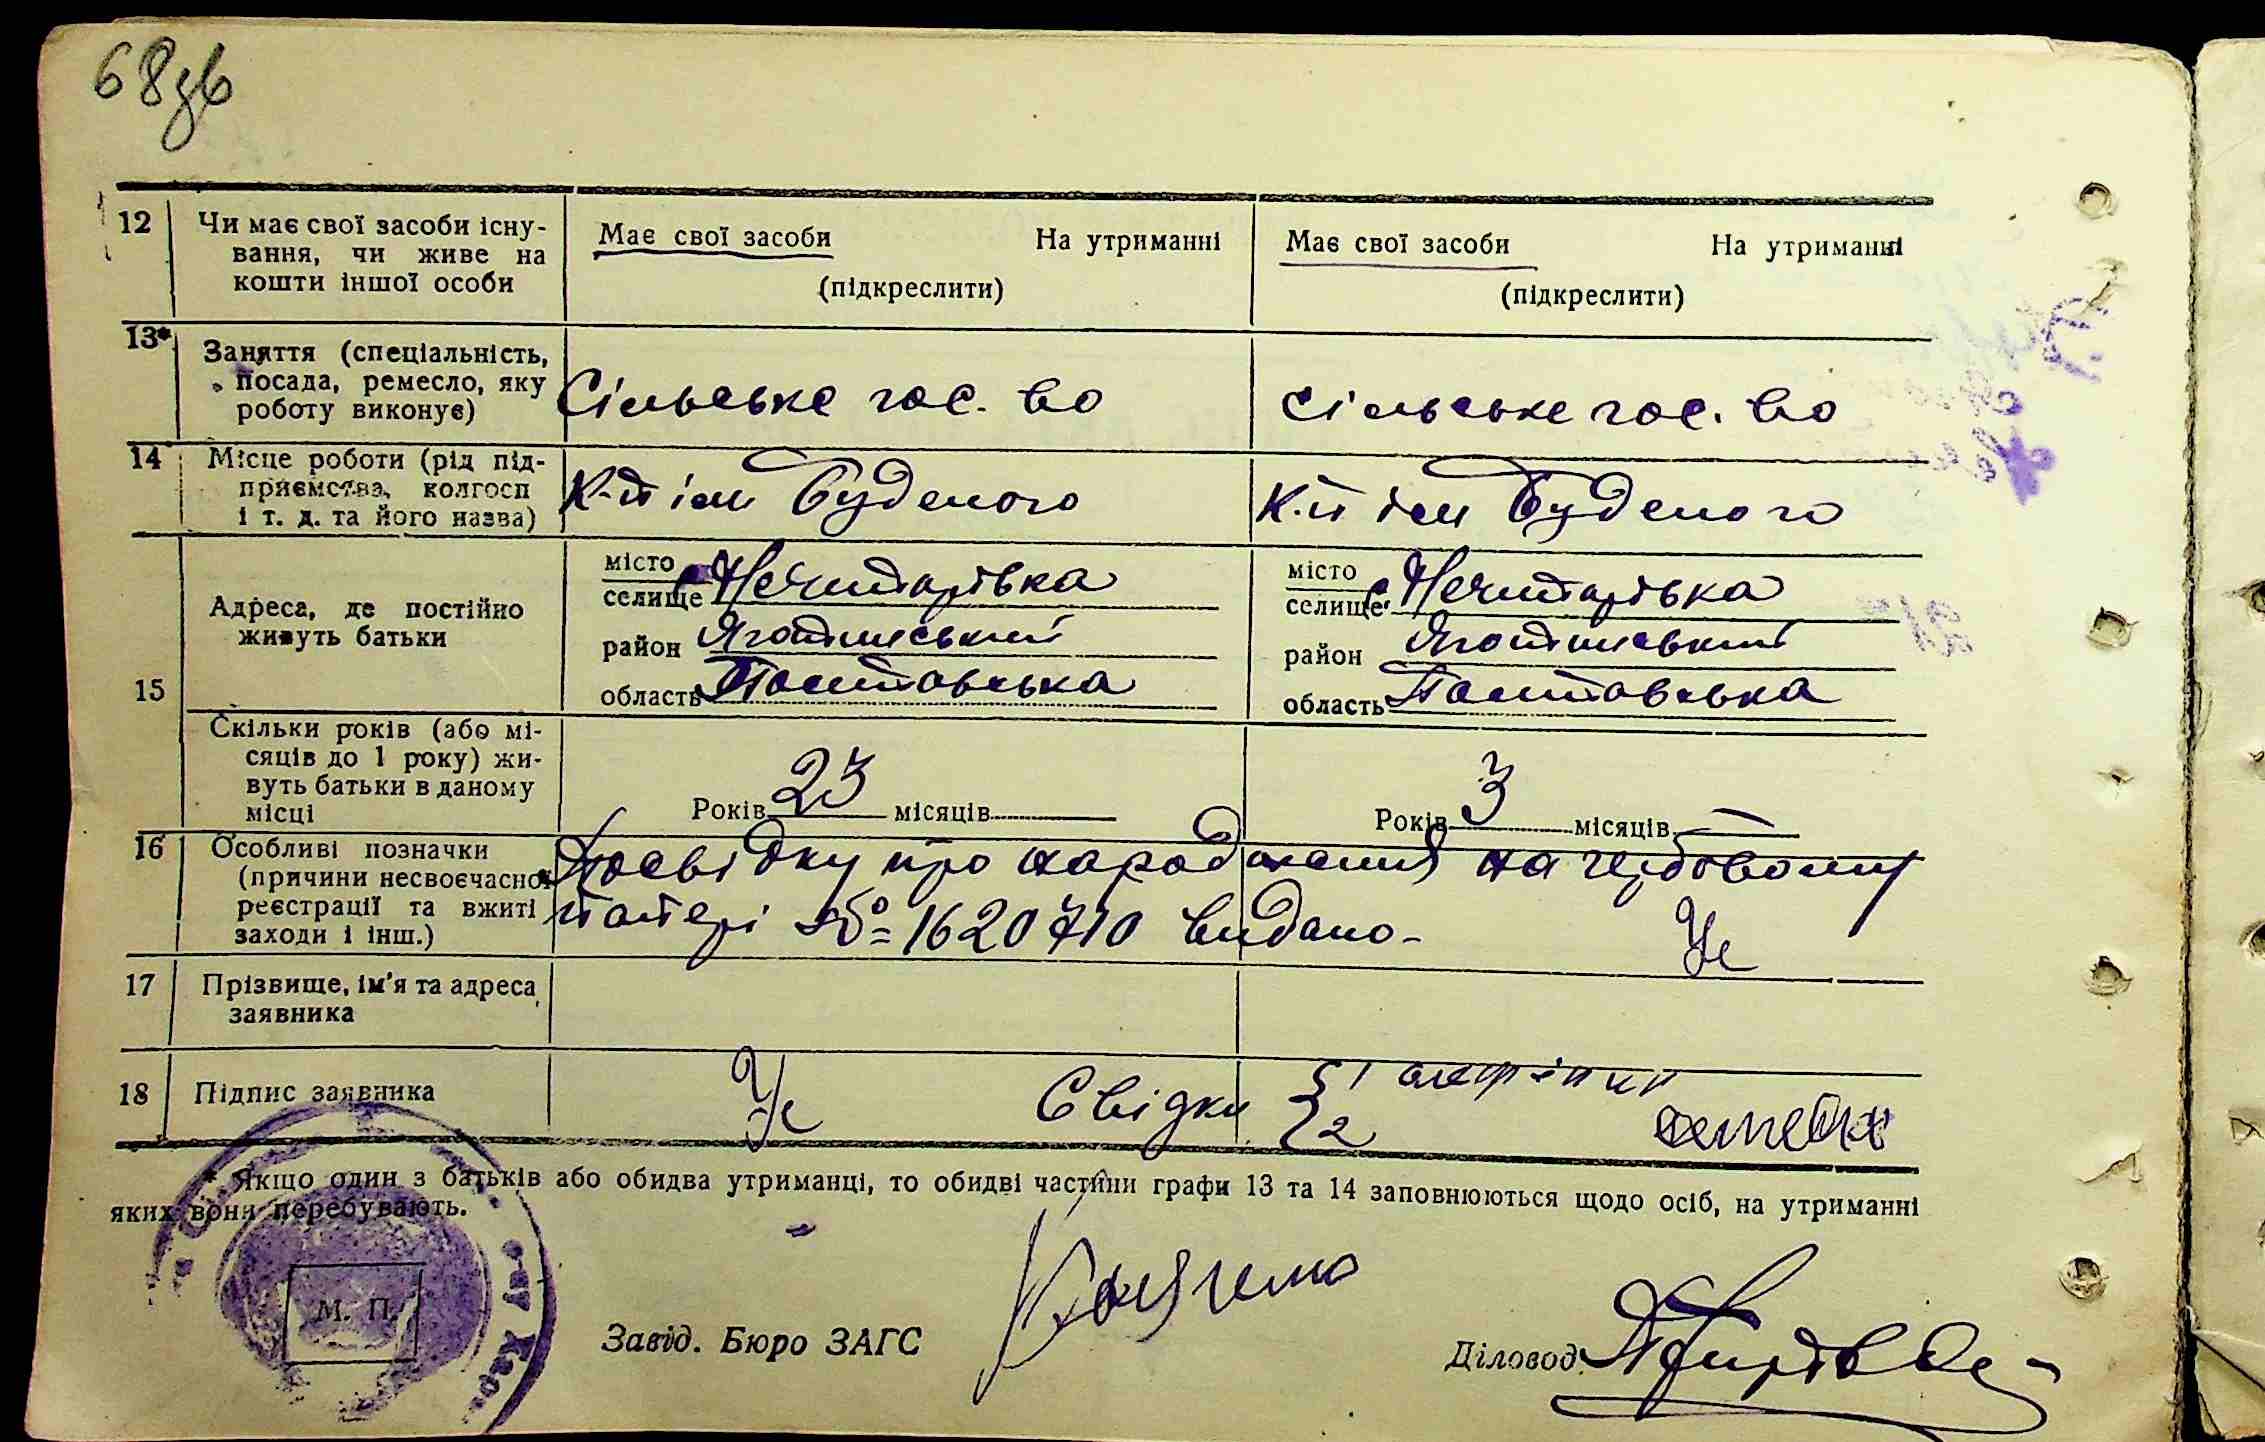 68зв
12 Чи має свої засоби існу-
вання, чи живе на
кошти іншої особи
Має свої засоби На утриманні
(підкреслити)
Має свої засоби На утриманні
(підкреслити)
13* Заняття (спеціальність,
посада, ремесло, яку
роботу виконує)
Сільське гос. во
сільське гос. во
14 Місце роботи (рід під-
приємства, колгосп
і т. д. та його назва)
К-п ім Буденого
К-п ім Буденого
15 Адреса, де постійно
живуть батьки
місто
селище с Нечипорівка
район Яготинський
область Полтавська
місто
селище с. Нечипорівка
район Яготинський
область Полтавська
Скільки років (або мі-
сяців до 1 року) жи-
вуть батьки в даному
місці
Років 23 місяців
Років 3 місяців —
16 Особливі позначки
(причини несвоєчасної
реєстрації та вжиті
заходи і інш.)
Посвідку про народження на гербовому
папері № 1620710 видано-
17 Прізвище, ім'я та адреса
заявника
18 Підпис заявника
Свідки 1
2
* Якщо один з батьків або обидва утриманці, то обидві частини графи 13 та 14 заповнюються щодо осіб, на утриманні
яких вони перебувають.
М. П.
Завід. Бюро ЗАГС
Діловод